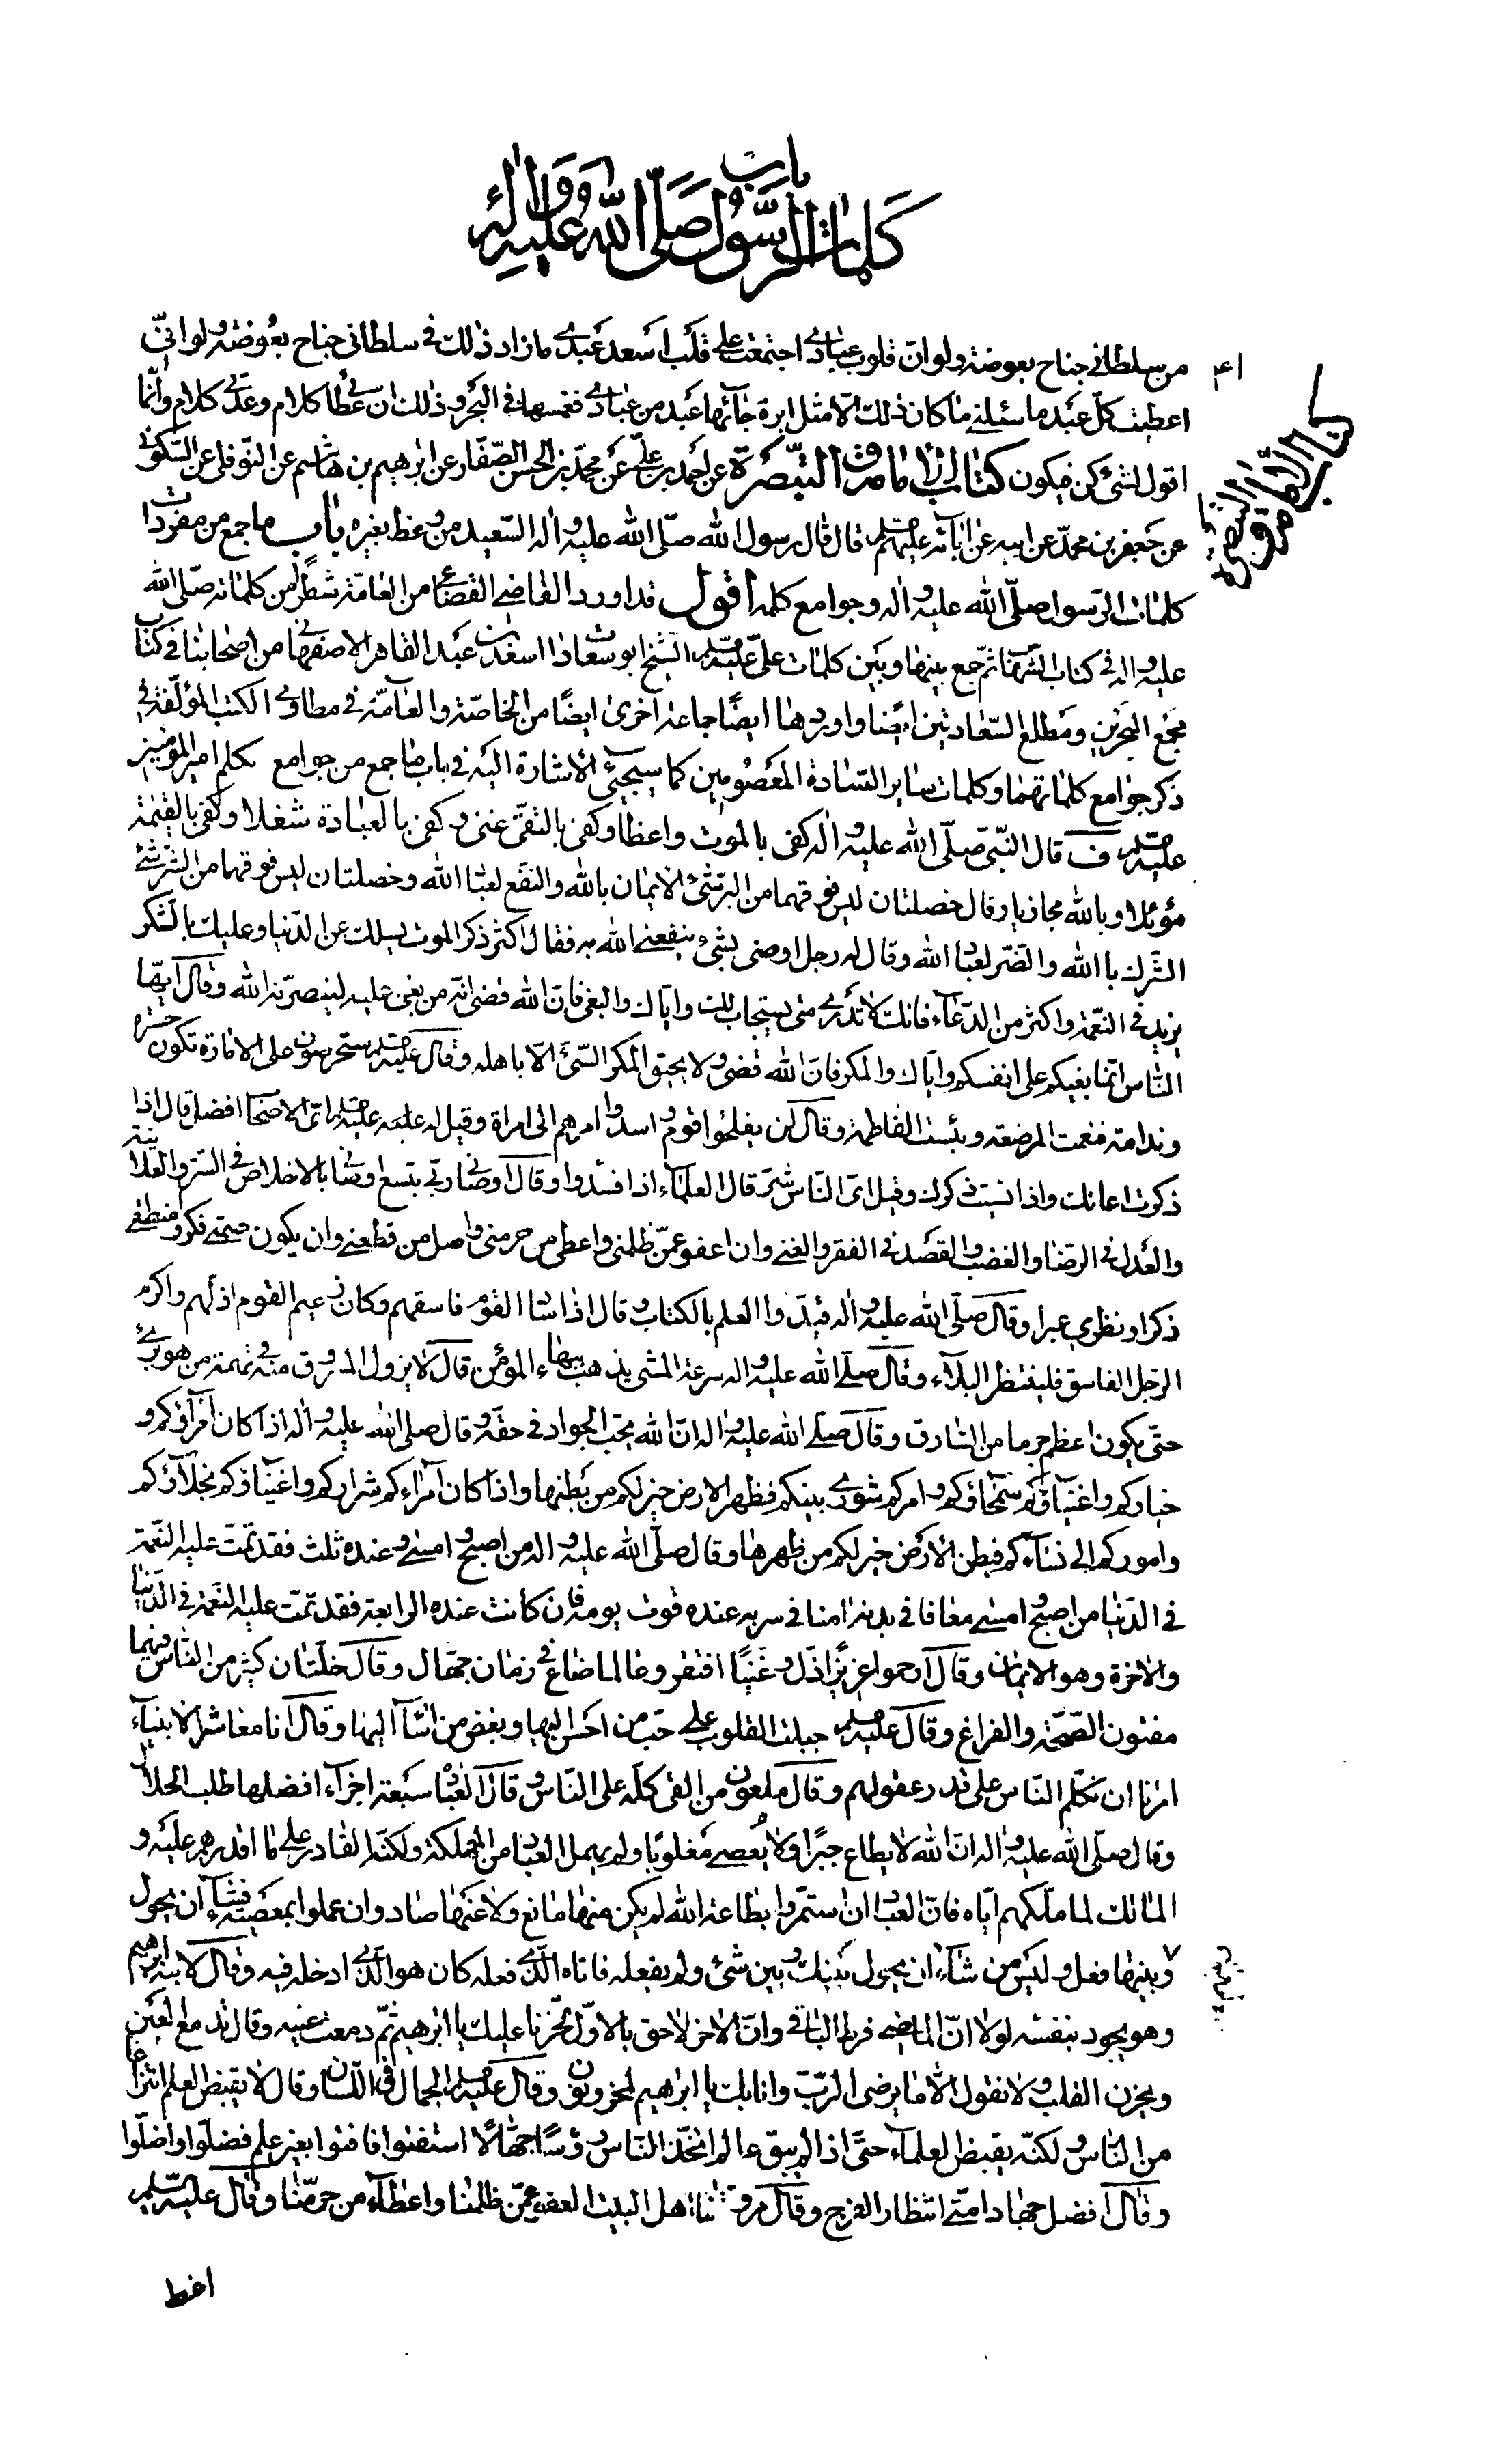 باب
كلمات الرسول صلى الله عليه واله
٤١
كتاب الامامة والتبصرة
من سلطانى جناح بعوضة ولو ان قلوب عبادى اجتمعت على قلب اسعد عبدى ما زاد ذلك فى سلطانى جناح بعوضة ولو انى
اعطيت كل عبد ما سئلنى ما كان ذلك الا مثل ابرة جائها عبد من عبادى فغمسها فى البحر وذلك ان عطائى كلام وعدتى كلام وانما
اقول لشئ كن فيكون كتاب الامامة والتبصرة عن احمد بن على عن محمد بن الحسن الصفار عن ابراهيم بن هاشم عن النوفلى عن السكونى
عن جعفر بن محمد عن ابيه عن ابائه عليهم قال قال رسول الله صلى الله عليه واله السعيد من وعظ بغيره باب ما جمع من مفردات
كلمات الرسول صلى الله عليه واله وجوامع كلمه اقول قد اورد القاضى القضاعى من العامة شطرا من كلماته صلى الله
عليه واله فى كتاب الشهاب ثم جمع بينها وبين كلمات على عليه السلم الشيخ ابو السعادات اسعد بن عبد القاهر الاصفهانى من اصحابنا فى كتاب
مجمع البحرين ومطلع السعادتين ايضا واوردها ايضا جماعة اخرى ايضا من الخاصة والعامة فى مطاوى الكتب المؤلفة فى
ذكر جوامع كلماتهما وكلمات ساير السادة المعصومين كما سيجئ الاشارة اليه فى باب ما جمع من جوامع كلم امير المؤمنين
عليه السلم ف قال النبى صلى الله عليه واله كفى بالموت واعظا وكفى بالتقى غنى وكفى بالعبادة شغلا وكفى بالقيمة
موئلا وبالله مجازيا وقال خصلتان ليس فوقهما من البر شئ الايمان بالله والنفع لعباد الله وخصلتان ليس فوقهما من الشر شئ
الشرك بالله والضر لعباد الله وقال له رجل اوصنى بشئ ينفعنى الله به فقال اكثر ذكر الموت يسلك عن الدنيا وعليك بالشكر
يزيد فى النعمة واكثر من الدعاء فانك لا تدرى متى يستجاب لك واياك والبغى فان الله قضى انه من بغى عليه لينصرنه الله وقال ايها
الناس انما بغيكم على انفسكم واياك والمكر فان الله قضى ولا يحيق المكر السئ الا باهله وقال عليه السلم ستحرصون على الامارة تكون حسرة
وندامة فنعمت المرضعة وبئست الفاطمة وقال لن يفلح قوم اسدوا امرهم الى امراة وقيل له عليه السلم اى الاصحاب افضل قال اذا
ذكرت اعانك واذا نسيت ذكرك وقيل اى الناس شر قال العلماء اذا فسدوا وقال اوصانى ربى بتسع اوصانى بالاخلاص فى السر والعلانية
والعدل فى الرضا والغضب والقصد فى الفقر والغنى وان اعفو عمن ظلمنى واعطى من حرمنى واصل من قطعنى وان يكون صمتى فكرا ومنطقى
ذكرا ونظرى عبرا وقال صلى الله عليه واله قيدوا العلم بالكتاب وقال اذا ساد القوم فاسقهم وكان زعيم القوم اذلهم واكرم
الرجل الفاسق فلينتظر البلاء وقال صلى الله عليه واله سرعة المشى يذهب ببهاء المؤمن وقال لا يزول المسروق منه فى تهمة من هو برئ
حتى يكون اعظم جرما من السارق وقال صلى الله عليه واله ان الله يحب الجواد فى حقه وقال صلى الله عليه واله اذا كان امراؤكم
خياركم واغنياؤكم سمحاؤكم وامركم شورى بينكم فظهر الارض خير لكم من بطنها واذا كان امراءكم شراركم واغنياؤكم بخلاؤكم
واموركم الى نسائكم فبطن الارض خير لكم من ظهرها وقال صلى الله عليه واله من اصبح وامسى وعنده ثلث فقد تمت عليه النعمة
فى الدنيا من اصبح وامسى معافا فى بدنه امنا فى سربه عنده قوت يومه فان كانت عنده الرابعة فقد تمت عليه النعمة فى الدنيا
والاخرة وهو الايمان وقال ارحموا عزيزا ذل وغنيا افتقر وعالما ضاع فى زمان جهال وقال خلتان كثير من الناس فيهما
مفتون الصحة والفراغ وقال عليه السلم جبلت القلوب على حب من احسن اليها وبغض من اساء اليها وقال انا معاشر الانبياء
امرنا ان نكلم الناس على قدر عقولهم وقال ملعون من القى كله على الناس وقال العبادة سبعة اجزاء افضلها طلب الحلال
وقال صلى الله عليه واله ان الله لا يطاع جبرا ولا يعصى مغلوبا ولم يهمل العباد من المملكة ولكنه القادر على ما اقدرهم عليه و
المالك لما ملكهم اياه فان العباد ان استمروا بطاعة الله لم يكن منها مانع ولا عنها صاد وان عملوا بمعصيته فشاء ان يحول
وبينها فعل وليس من شاء ان يحول بينك وبين شئ ولم يفعله فاتاه الذى فعله كان هو الذى ادخله فيه وقال لابنه ابرهيم
وهو يجود بنفسه لولا ان الماضى فرط الباقى وان الاخر لاحق بالاول لحزنا عليك يا ابرهيم ثم دمعت عينه وقال تدمع العين
ويحزن القلب ولا نقول الا ما يرضى الرب وانا بك يا ابرهيم لمحزونون وقال عليه السلم الجمال فى اللسان وقال لا يقبض العلم انتزاعا
من الناس ولكنه يقبض العلماء حتى اذا لم يبق عالم اتخذ الناس رؤسا جهالا استفتوا فافتوا بغير علم فضلوا واضلوا
وقال افضل جهاد امتى انتظار الفرج وقال مروتنا اهل البيت العفو عمن ظلمنا واعطاء من حرمنا وقال عليه السلم
اغبط